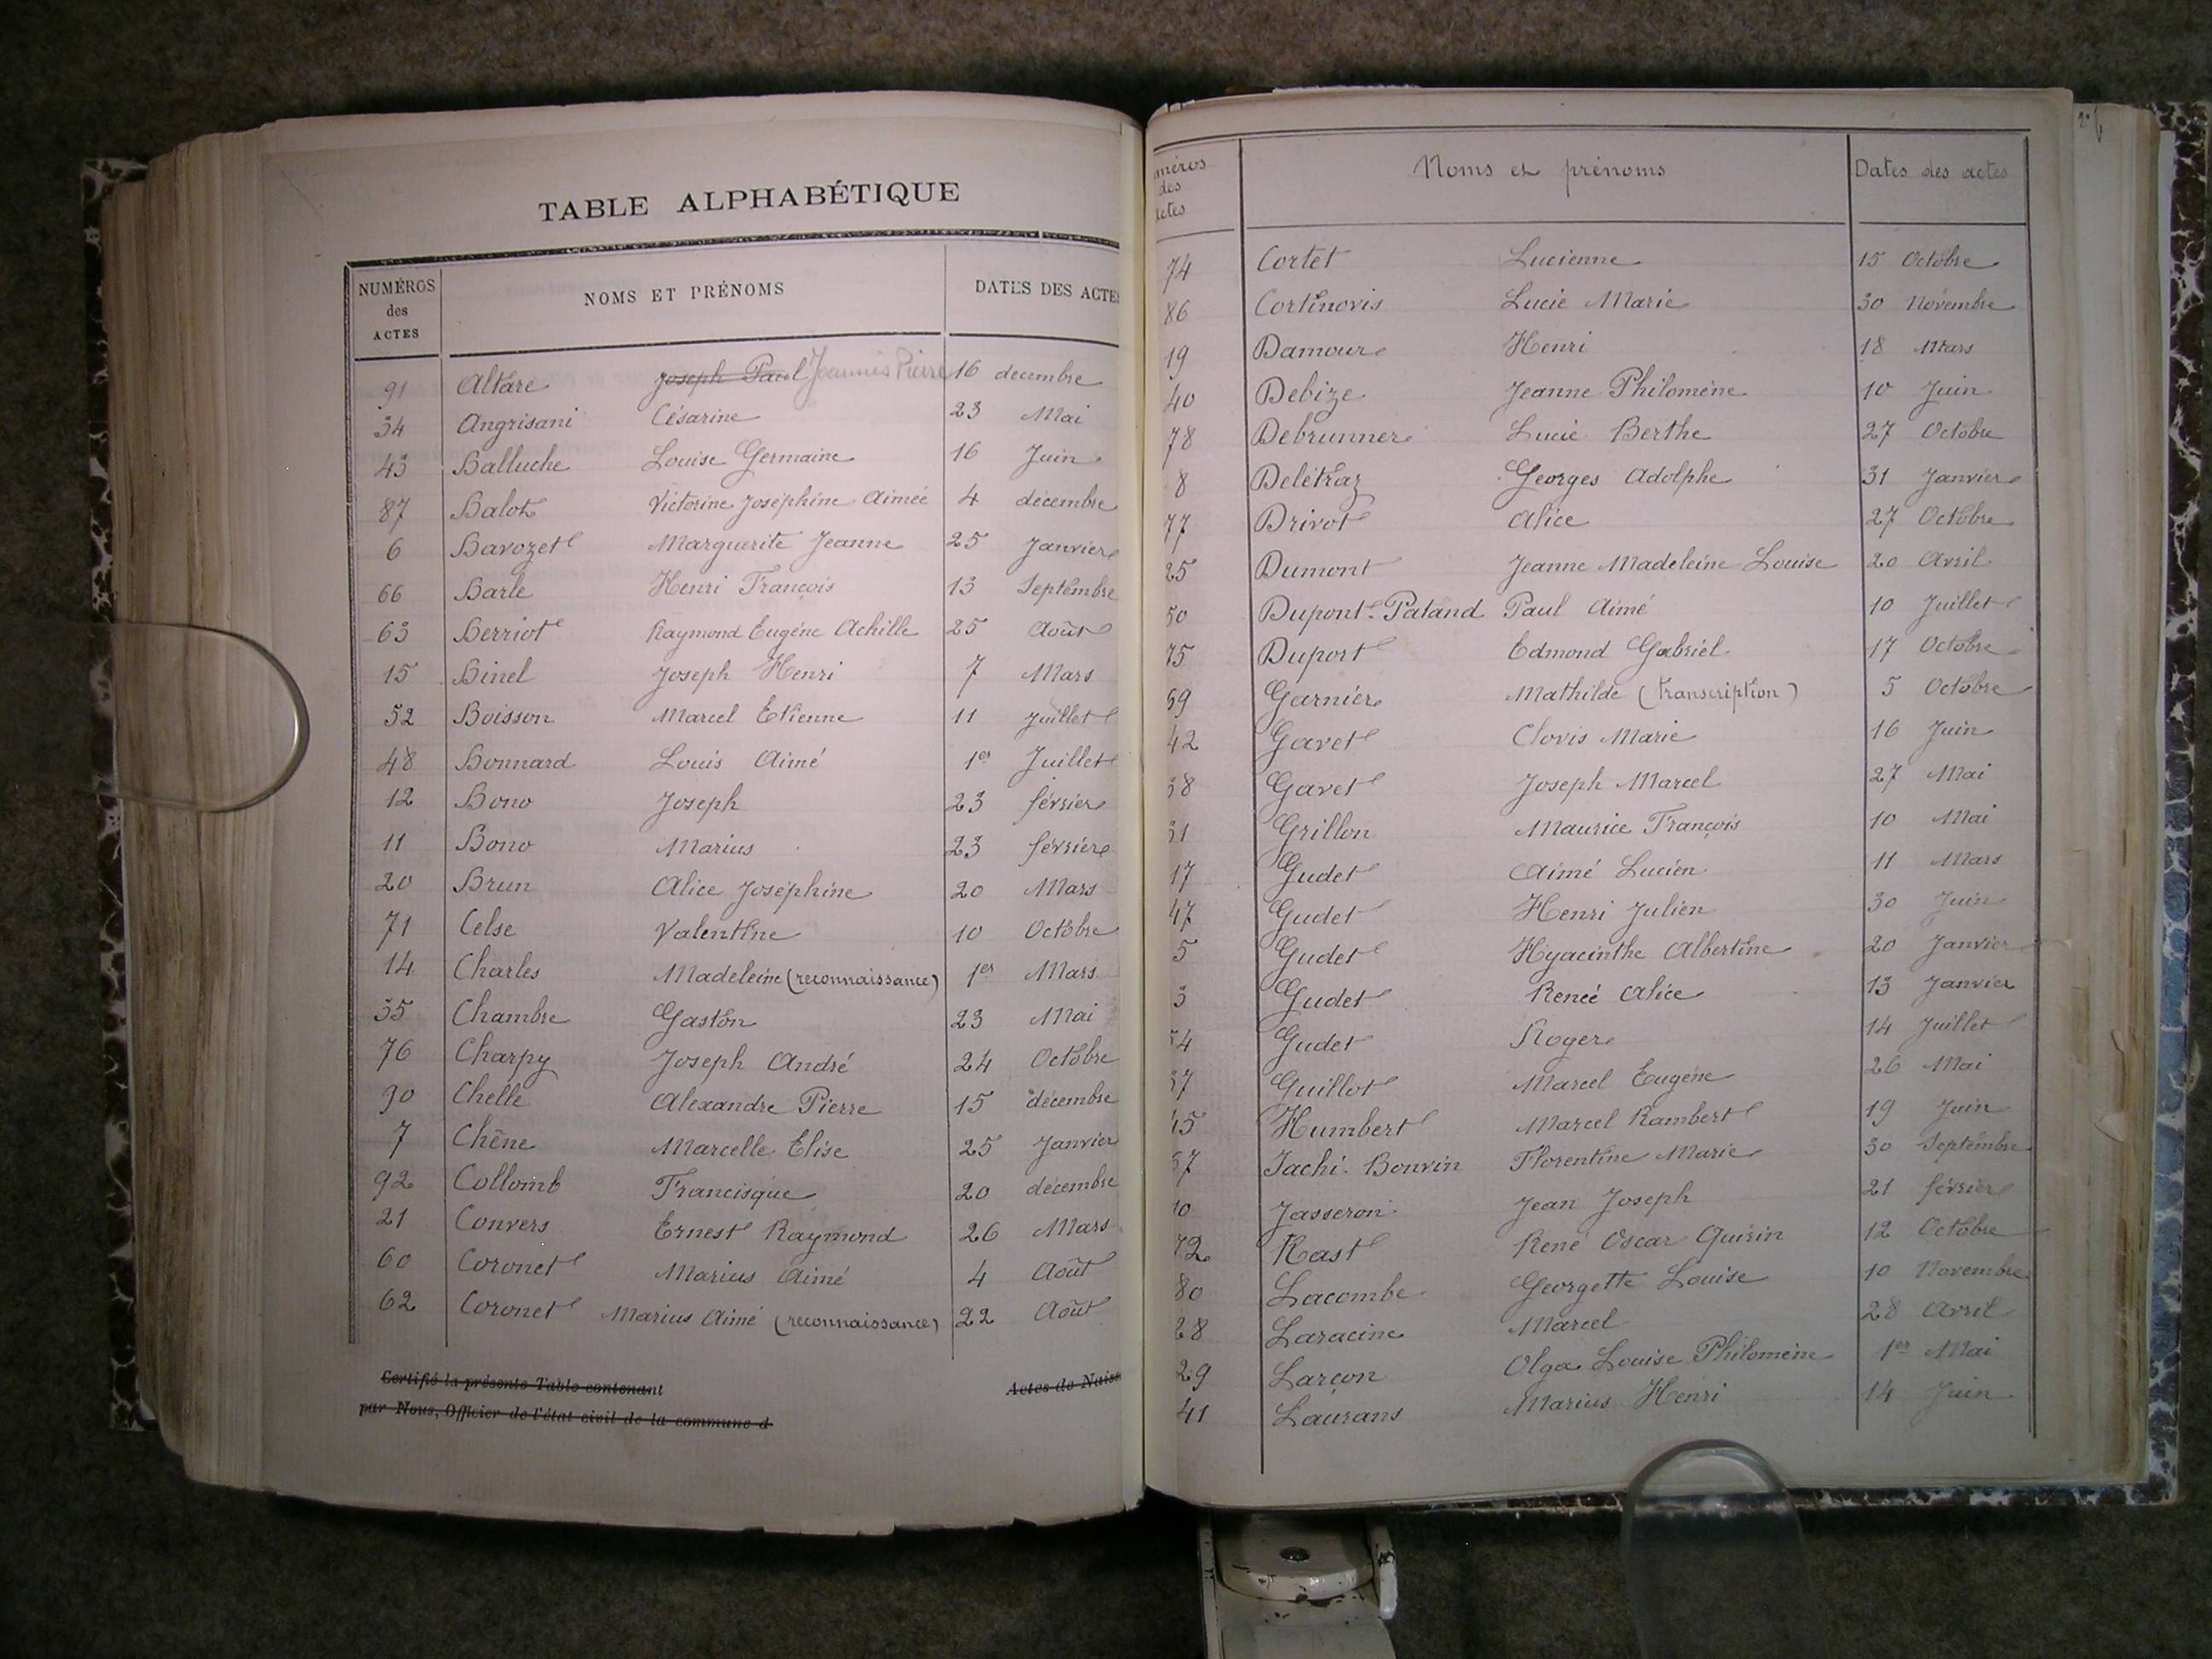 TABLE ALPHABÉTIQUE
NUMÉROS des ACTES NOMS ET PRÉNOMS DATES DES ACTE
91 Altare Joseph Paul Joannès Pierre 16 décembre
34 Angrisani Césarine 23 Mai
43 Balluche Louise Germaine 16 Juin
87 Balot Victorine Joséphine Aimée 4 décembre
6 Bavozet Marguerite Jeanne 25 Janvier
66 Barle Henri François 13 Septembre
63 Berriot Raymond Eugène Achille 25 Août
15 Binel Joseph Henri 7 Mars
52 Boisson Marcel Etienne 11 Juillet
48 Bonnard Louis Aimé 1er Juillet
12 Bono Joseph 23 février
11 Bono Marius 23 février
20 Brun Alice Joséphine 20 Mars
71 Celse Valentine 10 Octobre
14 Charles Madeleine (reconnaissance) 1er Mars
35 Chambre Gaston 23 Mai
76 Charpy Joseph André 24 Octobre
90 Chelle Alexandre Pierre 15 décembre
7 Chêne Marcelle Elise 25 Janvier
92 Collomb Francisque 20 décembre
21 Convers Ernest Raymond 26 Mars
60 Coronet Marius Aimé 4 Août
62 Coronet Marius Aimé (reconnaissance) 22 Août
Certifié la présente Table contenant Actes de Naiss
par Nous, Officier de l'état civil de la commune d
méros des ctes Noms et prénoms Dates des actes
74 Cortet Lucienne 15 Octobre
86 Cortinovis Lucie Marie 30 Novembre
19 Damour Henri 18 Mars
40 Debize Jeanne Philomène 10 Juin
78 Debrunner Lucie Berthe 27 Octobre
8 Delétraz Georges Adolphe 31 Janvier
77 Drivot Alice 27 Octobre
25 Dumont Jeanne Madeleine Louise 20 Avril
50 Dupont-Patand Paul Aimé 10 Juillet
75 Duport Edmond Gabriel 17 Octobre
69 Garnier Mathilde (transcription) 5 Octobre
42 Gavet Clovis Marie 16 Juin
38 Gavet Joseph Marcel 27 Mai
31 Grillon Maurice François 10 Mai
17 Gudet Aimé Lucien 11 Mars
47 Gudet Henri Julien 30 Juin
5 Gudet Hyacinthe Albertine 20 Janvier
3 Gudet Renée Alice 13 Janvier
54 Gudet Roger 14 Juillet
37 Guillot Marcel Eugène 26 Mai
45 Humbert Marcel Rambert 19 Juin
67 Jachi-Bonvin Florentine Marie 30 Septembre
10 Jasseron Jean Joseph 21 février
72 Kast René Oscar Quirin 12 Octobre
80 Lacombe Georgette Louise 10 Novembre
28 Laracine Marcel 28 Avril
29 Larçon Olga Louise Philomène 1er Mai
41 Laurans Marius Henri 14 Juin